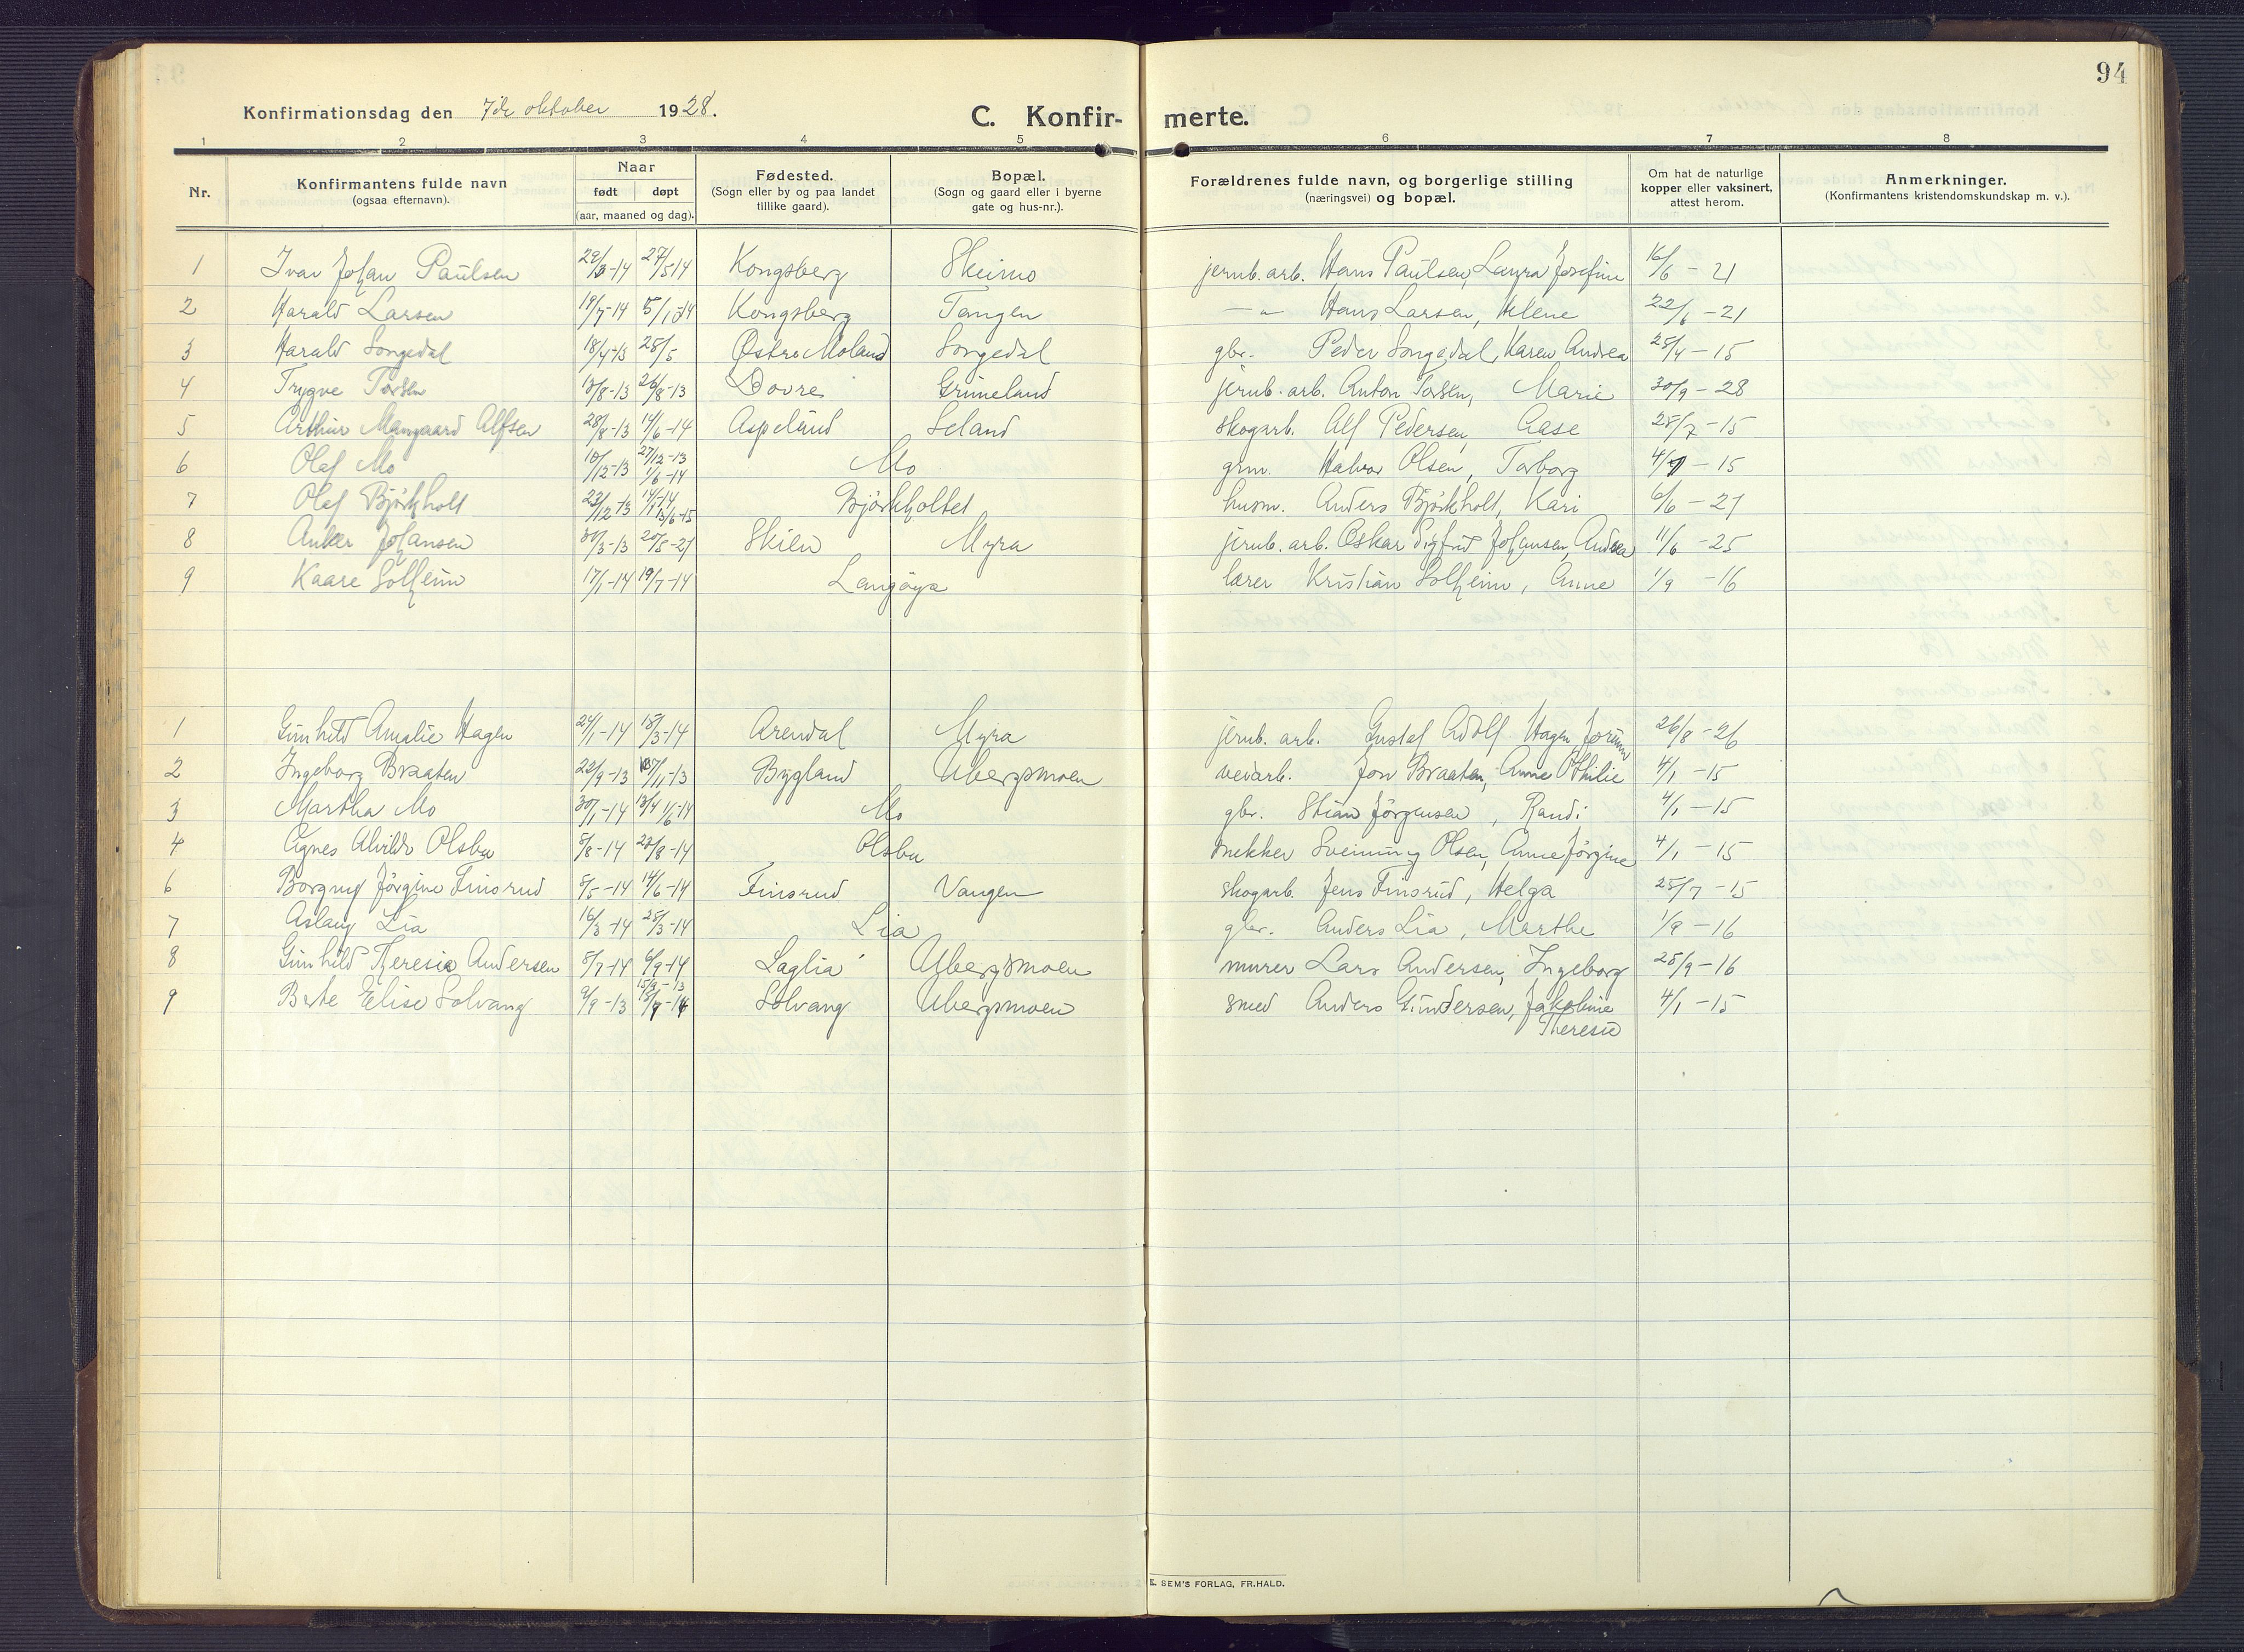 94
Konfirmationsdag den 7de oktober 1928.
C. Konfir- merte.
1 2 3 4 5 6 7 8
Nr.
Konfirmantens fulde navn
(ogsaa efternavn).
Naar
født døpt
(aar, maaned og dag).
Fødested.
(Sogn eller by og paa landet
tillike gaard).
Bopæl.
(Sogn og gaard eller i byerne
gate og hus-nr.).
Forældrenes fulde navn, og borgerlige stilling
(næringsvei) og bopæl.
Om hat de naturlige
kopper eller vaksinert,
attest herom.
Anmerkninger.
(Konfirmantens kristendomskundskap m. v.).
1 Ivar Johan Paulsen 27/5 14 Kongsberg Skeimo jernb. arb. Hans Paulsen, Laura Josefine 16/6 - 21
2 Harald Larsen 19/7-14 Kongsberg Tangen — " — Hans Larsen, Helene 22/6 - 21
3 Harald Songedal 18/4-13 25/5 Østre Moland Songedal gbr. Peder Songedal, Karen Andrea 25/4 - 15
4 Trygve Torsen 26/8-13 Dovre Grimeland jernb. arb. Anton Torsen, Marie 30/9 - 28
5 Arthur Alfsen 28/8-13 14/6-14 Aspelund Seland skogarb. Alf Pedersen, Aase 25/7 - 15
6 Olaf Mo 10/12-13 27/12-13 1/6-14 Mo grm. Halvor Olsen, Torborg - 15
7 Olaf Bjørkholt 23/12-13 Bjørkholtet husm. Anders Bjørkholt, Kari 6/6 - 21
8 Anker Johansen 20/5-21 Skien Myra jernb. arb. Oskar Sigfrid Johansen, Andrea 11/6 - 25
9 Kaare Solheim 17/1-14 19/7-14 Langøya lærer Kristian Solheim, Anne 1/9 - 16
1 Gunhild Amalie Hagen 24/1-14 15/3-14 Arendal Myra jernb. arb. Gustaf Adolf Hagen, Jorunn 26/8 - 26
2 Ingeborg Braaten 22/9-13 Bygland Ubergsmoen veiarb. Jon Braaten, Anne Othilie 4/1 - 15
3 Martha Mo 30/1-14 13/4 1/6-14 Mo gbr. Stian Jörgensen, Randi 4/1 - 15
4 Agnes Alvilde Olsbu 5/8-14 23/8-14 Olsbu snekker Sveinung Olsen, Anne Jörgine 4/1 - 15
6 Borgny Jörgine Finsrud 5/5-14 14/6-14 Finsrud Vangen skogarb. Jens Finsrud, Helga 25/7 - 15
7 Aslaug Lia 16/3-14 25/3-14 Lia gbr. Anders Lia, Marthe 1/9 - 16
8 Gunhild Theresie Andersen 5/7-14 6/9-14 Laglia Ubergsmoen murer Lars Andersen, Ingeborg 25/9 - 16
9 Berte Elise Solvang 9/9-13 Solvang Ubergsmoen smed Anders Gundersen, Jakobine 4/1 - 15
Theresie
E. SEM'S FORLAG, FR.HALD.